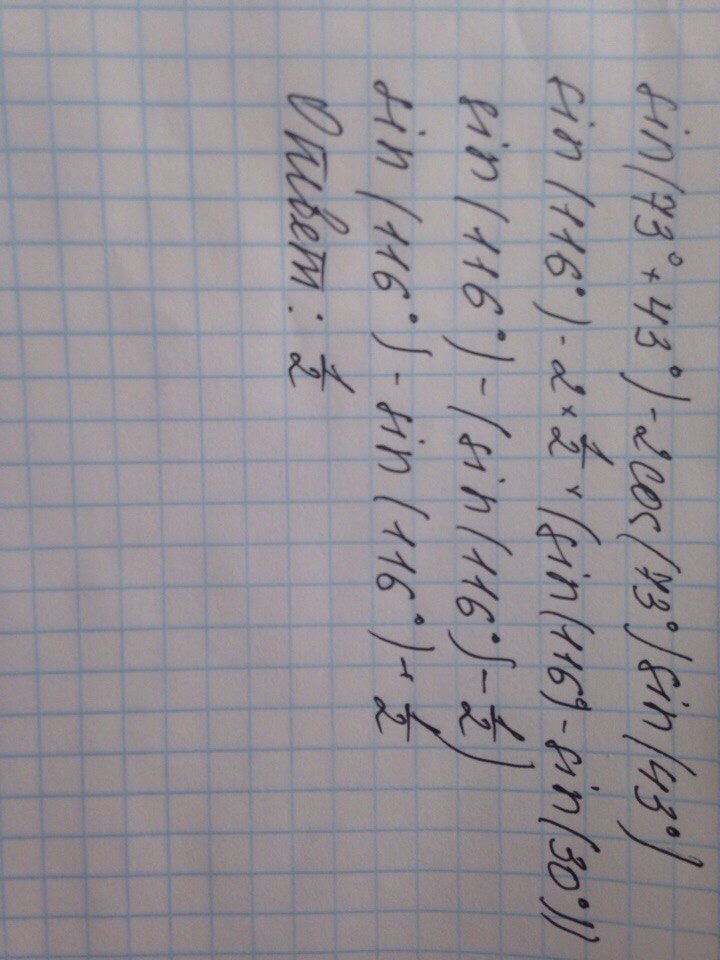 sin(73°+43°)-2cos(73°)sin(43°)
sin(116°)-2×1/2×(sin(116°)-sin(30°))
sin(116°)-(sin(116°)-1/2)
sin(116°)-sin(116°)+1/2
Ответ: 1/2